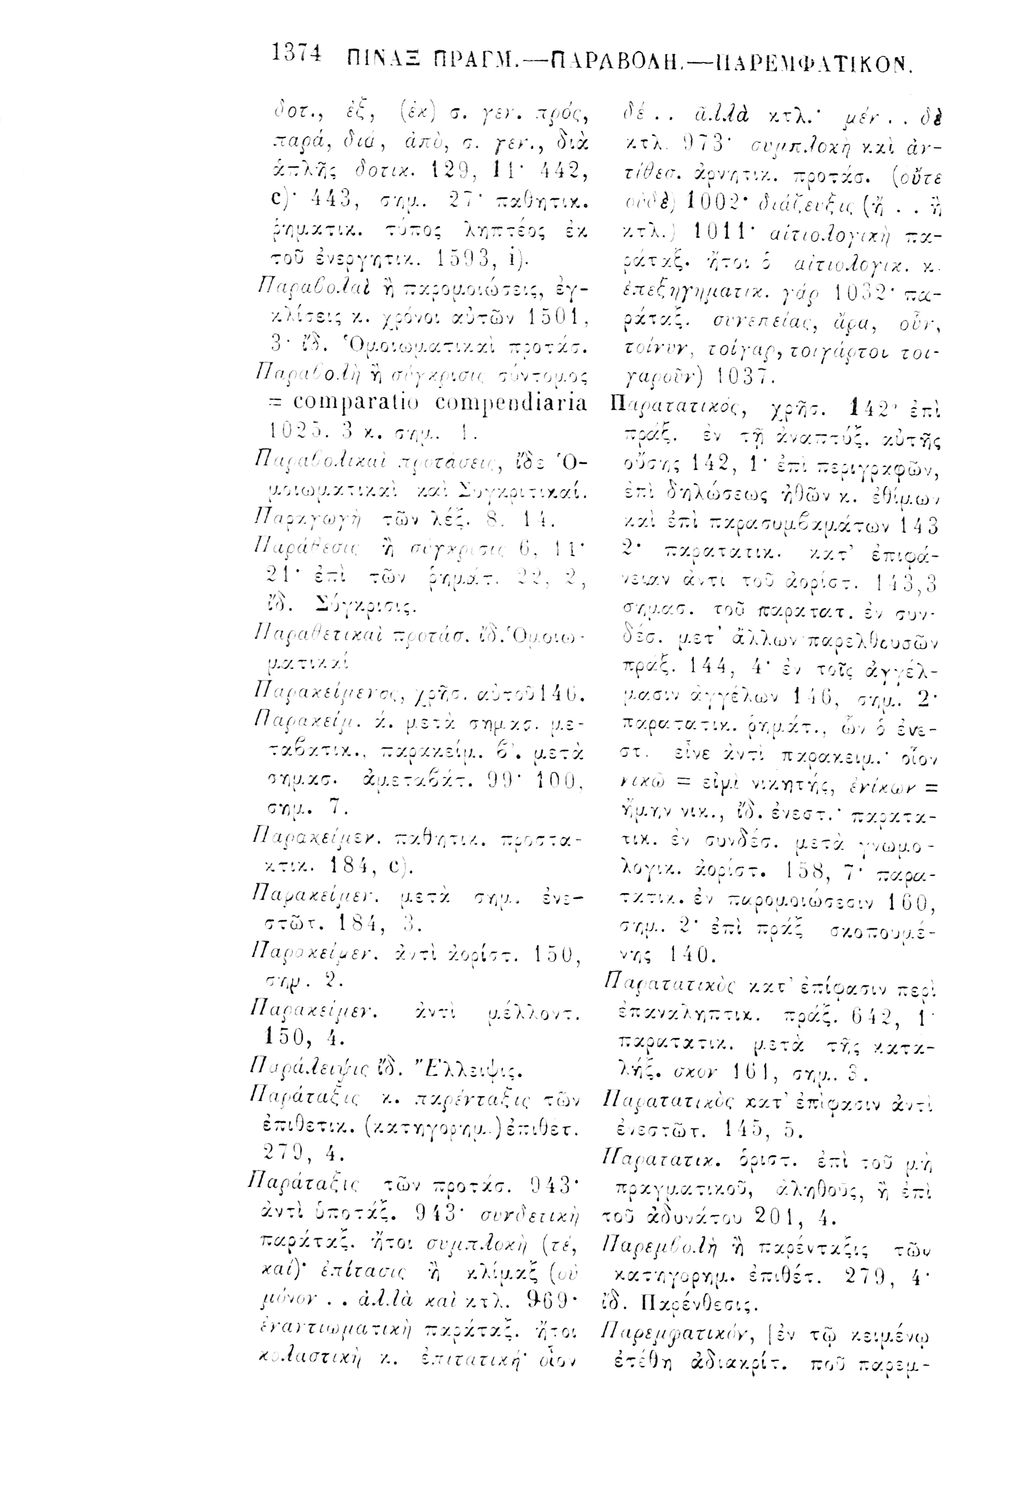 1374 ΠΙΝΑΞ ΠΡΑΓΜ.—ΠΑΡΑΒΟΛΗ.—ΠΑΡΕΜΦΑΤΙΚΟΝ.
δοτ., ἐξ, (ἐκ) σ. γεν. πρός,
παρά, διά, ἀπό, σ. γεν., διὰ
ἁπλῆς δοτικ. 129, 11· 442,
c)· 443, σημ. 27· παθητικ.
ῥηματικ. τύπος ληπτέος ἐκ
τοῦ ἐνεργητικ. 1593, i).
Παραβολαὶ ἢ παρομοιώσεις, ἐγ-
κλίσεις κ. χρόνοι αὐτῶν 1501,
3· ἰδ. Ὁμοιωματικαὶ προτάσ.
Παραβολὴ ἢ σύγκρισις σύντομος
= comparatio compendiaria
1025. 3 κ. σημ. 1.
Παραβολικαὶ προτάσεις, ἴδε Ὁ-
μοιωματικαὶ καὶ Συγκριτικαί.
Παραγωγὴ τῶν λέξ. 8. 14.
Παράθεσις ἢ σύγκρισις 6, 11·
21· ἐπὶ τῶν ῥημάτ. 22, 2,
ἰδ. Σύγκρισις.
Παραθετικαὶ προτάσ. ἰδ. Ὁμοιω-
ματικαί
Παρακείμενος, χρῆσ. αὐτοῦ 146.
Παρακείμ. ά. μετὰ σημασ. με-
ταβατικ., παρακείμ. β΄. μετὰ
σημασ. ἀμεταβάτ. 99· 100,
σημ. 7.
Παρακείμεν. παθητικ. προστα-
κτικ. 184, c).
Παρακείμεν. μετὰ σημ. ἐνε-
στῶτ. 184, 3.
Παρακείμεν. ἀντὶ ἀορίστ. 150,
σημ. 2.
Παρακείμεν. ἀντὶ μέλλοντ.
150, 4.
Παράλειψις ἰδ. Ἔλλειψις.
Παράταξις κ. παρένταξις τῶν
ἐπιθετικ. (κατηγορημ.) ἐπιθετ.
279, 4.
Παράταξις τῶν προτάσ. 943·
ἀντὶ ὑποτάξ. 943· συνδετικὴ
παράταξ. ἤτοι συμπλοκὴ (τέ,
καί)· ἐπίτασις ἢ κλίμαξ (οὐ
μόνον . . ἀλλὰ καὶ κτλ. 969·
ἐναντιωματικὴ παράταξ. ἤτοι
κολαστικὴ κ. ἐπιτατικὴ· οἷον
δέ . . ἀλλὰ κτλ.· μέν . . δὲ
κτλ. 973· συμπλοκὴ καὶ ἀν-
τίθεσ. ἀρνητικ. προτάσ. (οὔτε
οὐδὲ) 1002· διάζευξις (ἢ . . ἢ
κτλ.) 1011· αἰτιολογικὴ πα-
ράταξ. ἤτοι ὁ αἰτιολογικ. κ.
ἐπεξηγηματικ. γάρ 1032· πα-
ράταξ. συνεπείας, ἄρα, οὖν,
τοίνυν, τοίγαρ, τοιγάρτοι τοι-
γαροῦν) 1037.
Παρατατικός, χρῆσ. 142· ἐπὶ
πράξ. ἐν τῇ ἀναπτύξ. αὐτῆς
οὔσης 142, 1· ἐπὶ περιγραφῶν,
ἐπὶ δηλώσεως ἠθῶν κ. ἐθίμων
καὶ ἐπὶ παρασυμβαμάτων 143
2· παρατατικ. κατ' ἐπιφά-
νειαν ἀντὶ τοῦ ἀορίστ. 143,3
σημασ. τοῦ παρατατ. ἐν συν-
δέσ. μετ' ἄλλων παρελθουσῶν
πράξ. 144, 4· ἐν τοῖς ἀγγέλ-
μασιν ἀγγέλων 146, σημ. 2·
παρατατικ. ῥημάτ., ὧν ὁ ἐνε-
στ. εἶνε ἀντὶ παρακειμ.· οἷον
νικῶ = εἰμὶ νικητής, ἐνίκων =
ἤμην νικ., ἰδ. ἐνεστ.· παρατα-
τικ. ἐν συνδέσ. μετὰ γνωμο-
λογικ. ἀορίστ. 158, 7· παρα-
τατικ. ἐν παρομοιώσεσιν 160,
σημ. 2· ἐπὶ πράξ σκοπουμέ-
νης 140.
Παρατατικὸς κατ' ἐπίφασιν περὶ
ἐπαναληπτικ. πράξ. 642, 1·
παρατατικ. μετὰ τῆς κατα-
λήξ. σκον 161, σημ. 3.
Παρατατικὸς κατ' ἐπίφασιν ἀντὶ
ἐνεστῶτ. 145, 5.
Παρατατικ. ὁριστ. ἐπὶ τοῦ μὴ
πραγματικοῦ, ἀληθοῦς, ἢ ἐπὶ
τοῦ ἀδυνάτου 201, 4.
Παρεμβολὴ ἢ παρένταξις τῶν
κατηγορημ. ἐπιθέτ. 279, 4·
ἰδ. Παρένθεσις.
Παρεμφατικόν, [ἐν τῷ κειμένῳ
ἐτέθη ἀδιακρίτ. ποῦ παρεμ-